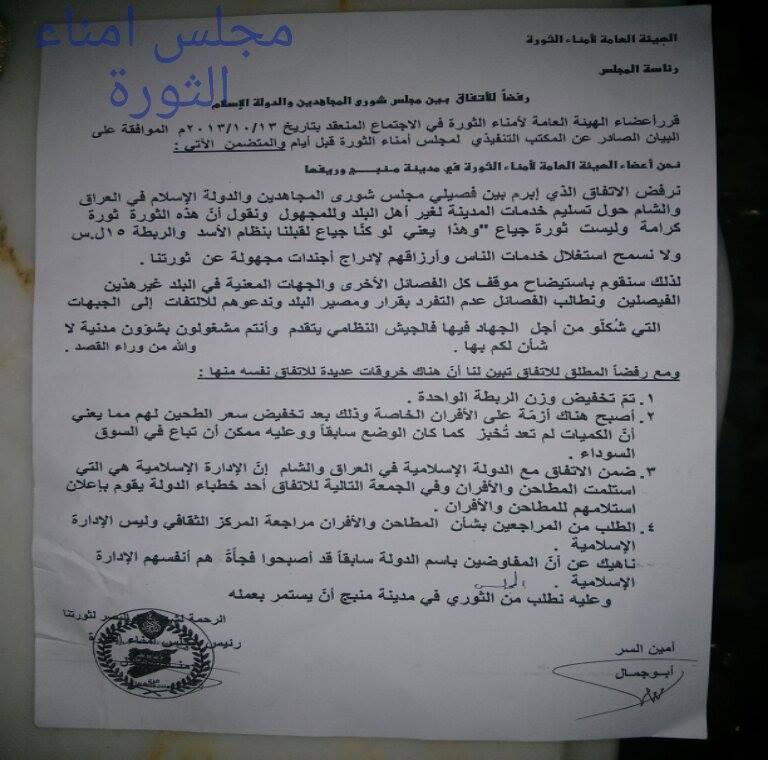 مجلس امناء
الثورة
الهيئة العامة لأمناء الثورة
رئاسة المجلس
رفضاً للأتفاق بين مجلس شورى المجاهدين والدولة الإسلام
قرر أعضاء الهيئة العامة لأمناء الثورة في الاجتماع المنعقد بتاريخ ٢٠١٣/١٠/١٣م الموافقة على
البيان الصادر عن المكتب التنفيذي لمجلس أمناء الثورة قبل أيام والمتضمن الآتي :
نحن أعضاء الهيئة العامة لأمناء الثورة في مدينة منبـــج وريفها
نرفض الاتفاق الذي إبرم بين فصيلي مجلس شورى المجاهدين والدولة الإسلام في العراق
والشام حول تسليم خدمات المدينة لغير أهل البلد وللمجهول ونقول أنّ هذه الثورة ثورة
كرامة وليست ثورة جياع "وهذا يعني لو كنّا جياع لقبلنا بنظام الأسد والربطة ١٥ل.س
ولا نسمح استغلال خدمات الناس وأرزاقهم لإدراج أجندات مجهولة عن ثورتنا .
لذلك سنقوم باستيضاح موقف كل الفصائل الأخرى والجهات المعنية في البلد غير هذين
الفيصلين ونطالب الفصائل عدم التفرد بقرار ومصير البلد وندعوهم للالتفات إلى الجبهات
التي شُكلّو من أجل الجهاد فيها فالجيش النظامي يتقدم وأنتم مشغولون بشؤون مدنية لا
شأن لكم بها . والله من وراء القصد .
ومع رفضاً المطلق للاتفاق تبين لنا أنّ هناك خروقات عديدة للاتفاق نفسه منها :
١. تمّ تخفيض وزن الربطة الواحدة .
٢. أصبح هناك أزمّة على الأفران الخاصة وذلك بعد تخفيض سعر الطحين لهم مما يعني
أنّ الكميات لم تعد تُخبز كما كان الوضع سابقاً ووعليه ممكن أن تباع في السوق
السوداء .
٣. ضمن الاتفاق مع الدولة الإسلامية في العراق والشام إنّ الإدارة الإسلامية هي التي
استلمت المطاحن والأفران وفي الجمعة التالية للاتفاق أحد خطباء الدولة يقوم بإعلان
استلامهم للمطاحن والأفران .
٤. الطلب من المراجعين بشأن المطاحن والأفران مراجعة المركز الثقافي وليس الإدارة
الإسلامية .
ناهيك عن أنّ المفاوضين باسم الدولة سابقاً قد أصبحوا فجأةً هم أنفسهم الإدارة
الإسلامية .
وعليه نطلب من الثوري في مدينة منبج أنّ يستمر بعمله
الرحمة النصر لثورتنا
أمين السر
رئيس مجلس أمناء
أبوجمال